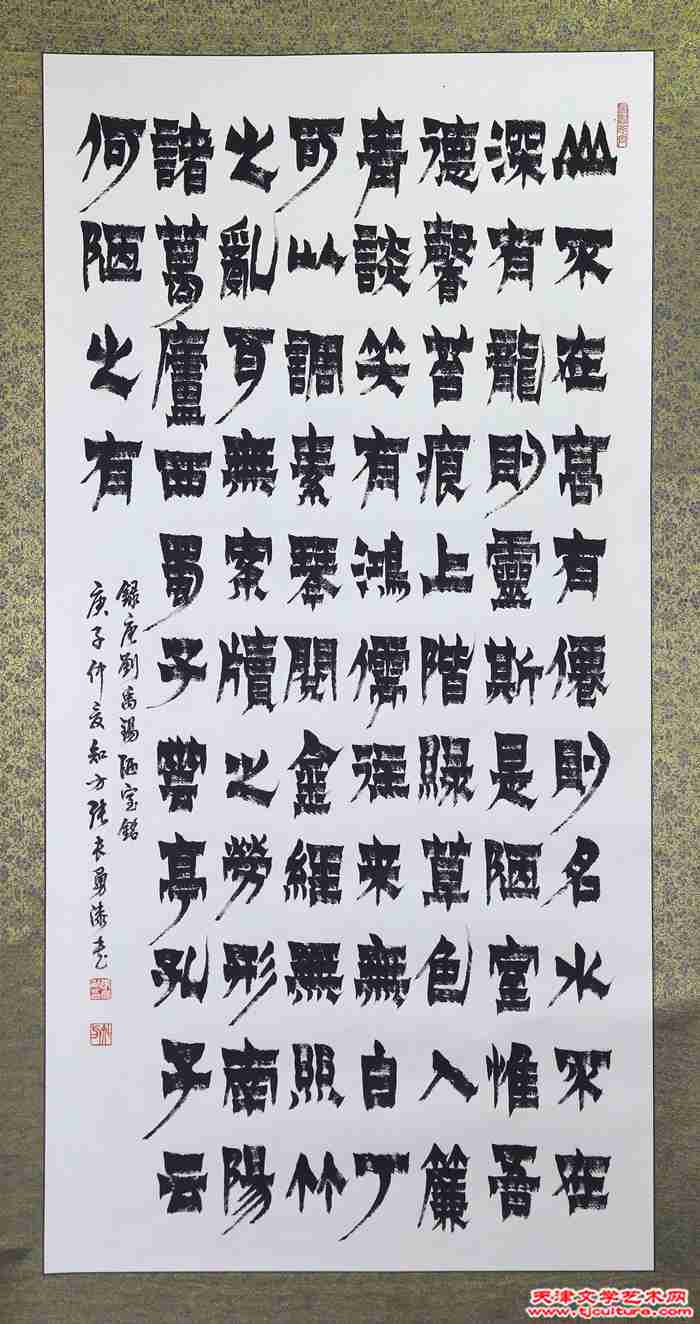 山不在高有僊則名水不在
深有龍則靈斯是陋室惟吾
德馨苔痕上階綠草色入簾
青談笑有鴻儒往来無白丁
可以調素琴閱金經無絲竹
之亂耳無案牘之勞形南陽
諸葛廬西蜀子雲亭孔子云
何陋之有
錄唐劉禹錫陋室銘
庚子仲夏知方張勇漆書
天津文学艺术网
www.tjcultura.com